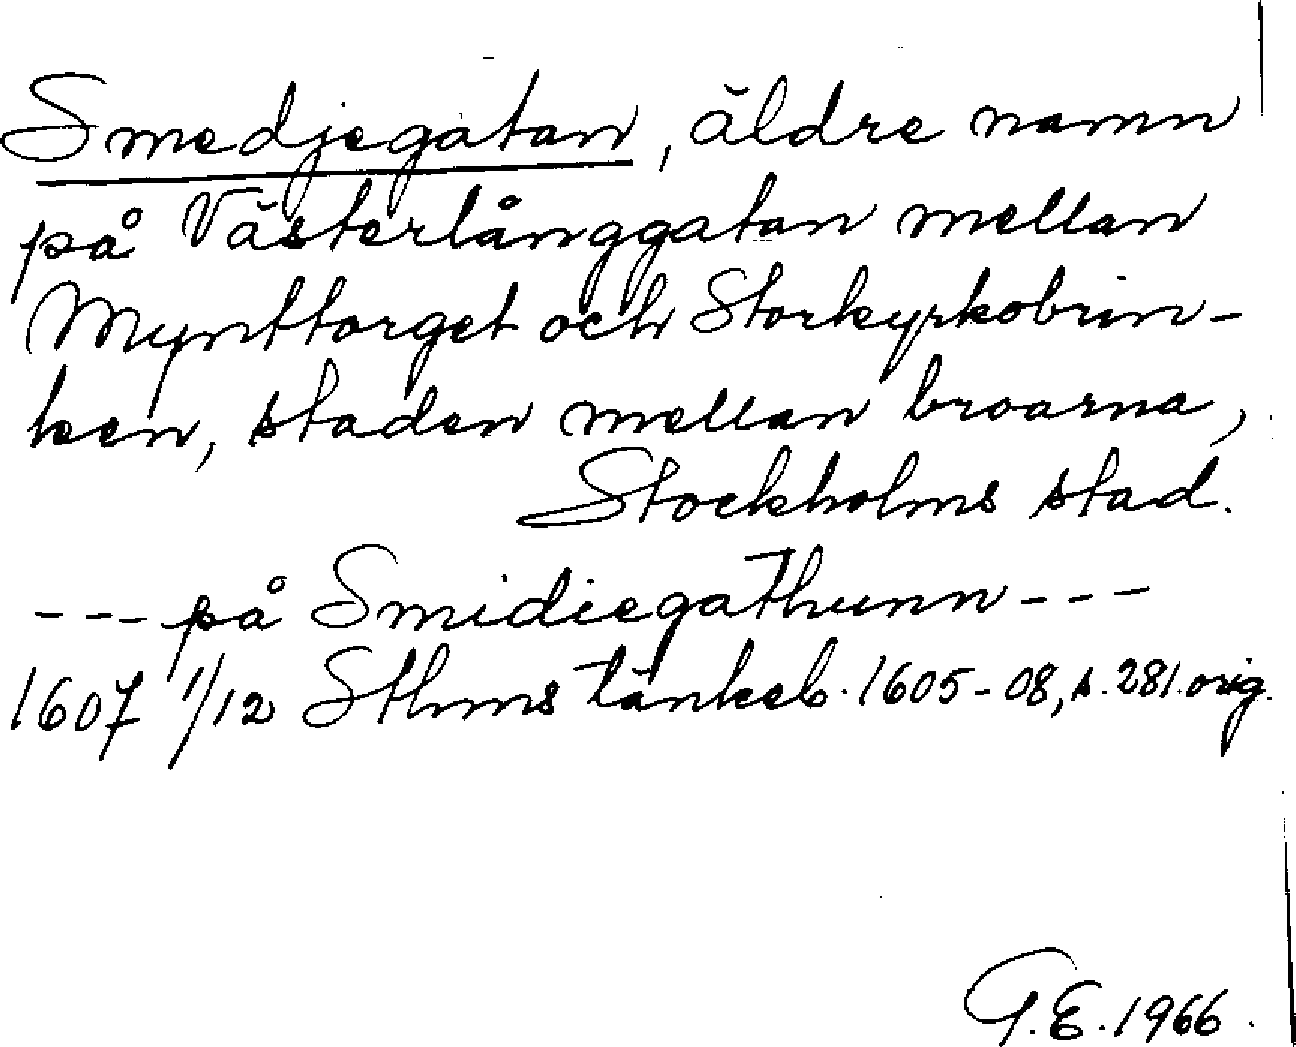 Smedjegatan, äldre namn
på Västerlånggatan mellan
Mynttorget och Storkyrkobrin-
ken, staden mellan broarna,
Stockholms stad.
--- på Smidiegathunn ---
1607 1/12 Sthms tänkeb. 1605-08, s. 281. orig.
G.E. 1966.